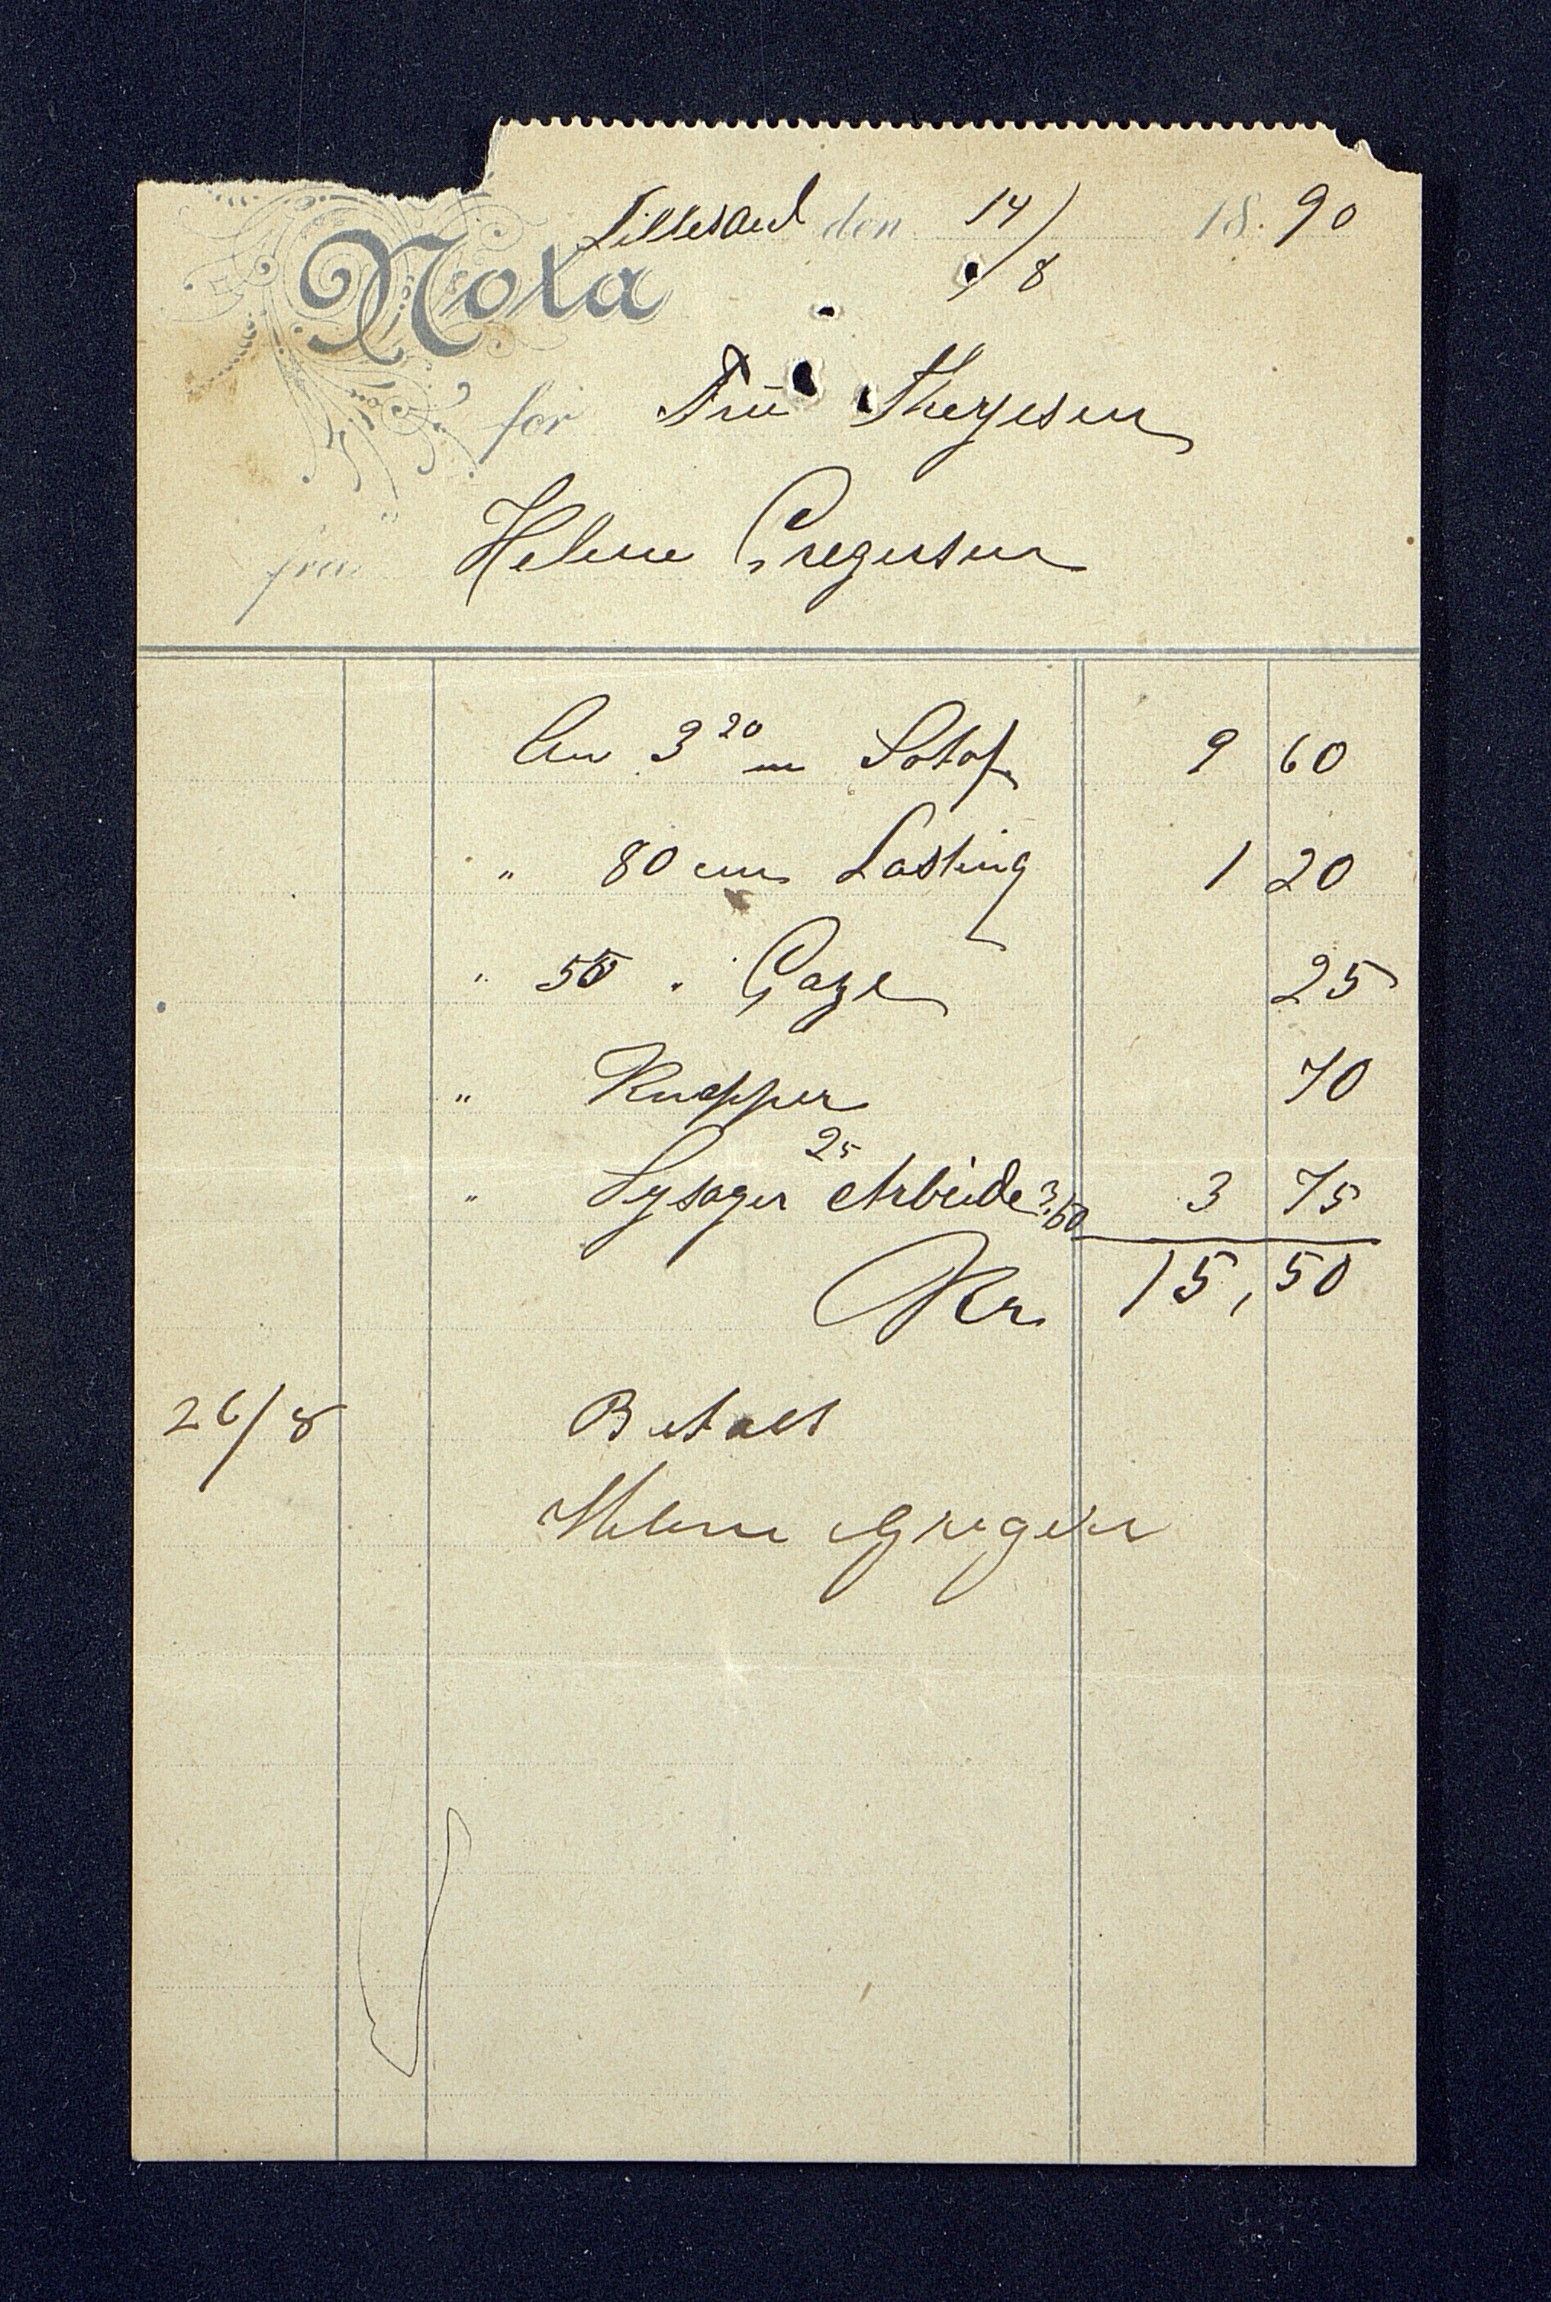 Lillesand den 14/8 1890
Nota
for Frū Therjesen
fra Helene Gregersen
An 3 20 m Stof 9 60
" 80 cm Lasting 1 20
" 50 " Gaze 25
" Knapper 70
" Sysager 25 Arbeide 3,50 3 75
Kr 15,50
26/8 Betalt
Helene Gregersen